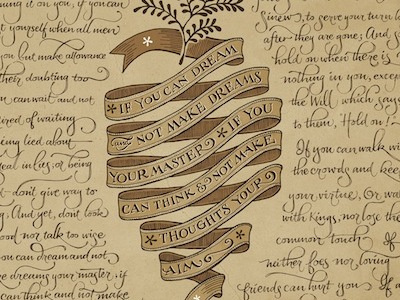 ning it on you, if you can
t yourself when all men
you but make allowance
their doubting too
can wait and not
tired of waiting
eing lied about
eal in lies; or being
t-don't give way to
g; And yet, dont look
ood nor talk too wise
ou can dream and not
e dreams your master; if
can think and not make
* IF YOU CAN DREAM
and NOT MAKE DREAMS
YOUR MASTER * IF YOU
CAN THINK & NOT MAKE
THOUGHTS YOUR
* AIM
sinew), to serve your turn lo
after they are gone; And s
hold on when there is
nothing in you, excep
the Will which says
to them, Hold on!
If you can walk wi
the crowds and keep
your virtue, Or wa
with Kings, nor lose the
common touch If
neither foes nor loving
friends can hurt you If a